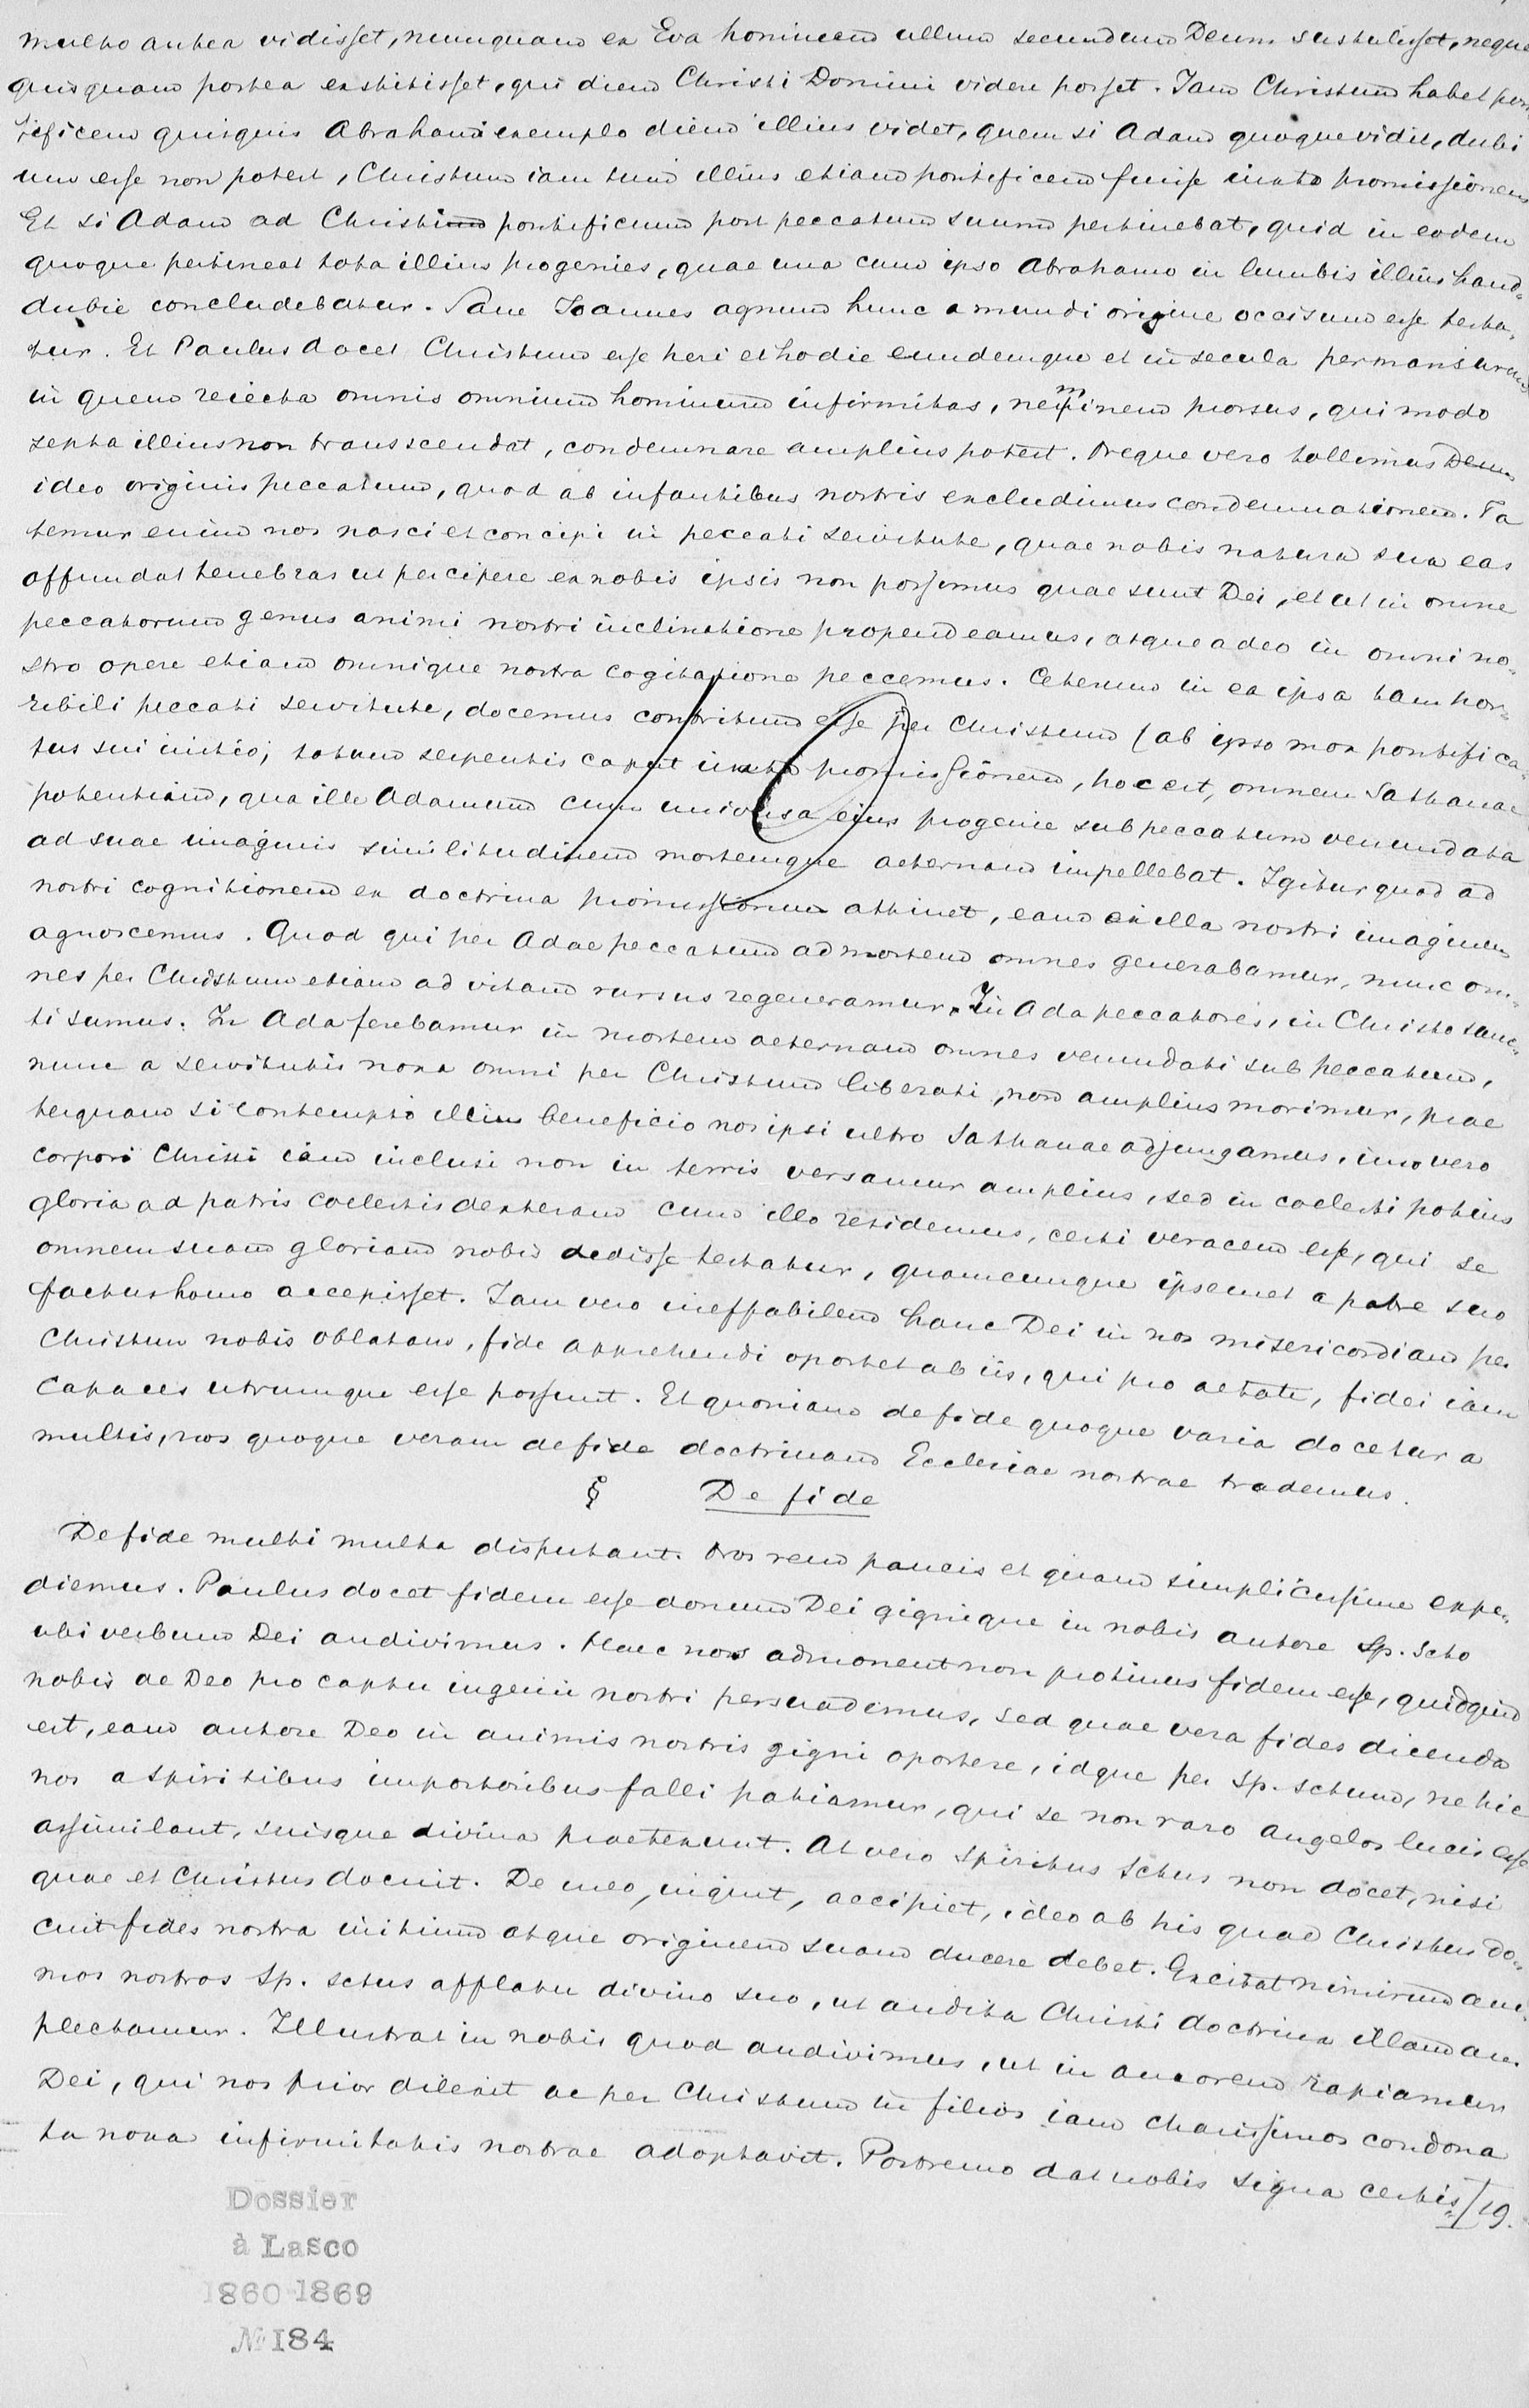 multo antea vidisset, nunquam ex Eva hominem ullum secundum Deum sustulisset, neque
quisquam postea exstitisset, qui diem Christi Domini videre posset. Iam Christum habet pon
tificem quisquis Abrahami exemplo diem illius videt, quem si Adam quoque vidit, dubi
um esse non potest, Christum iam tum illius etiam pontificem fuisse iuxta promissionem
Et si Adam ad Christi pontificium post peccatum suum pertinebat, quid in eodem
quoque pertineat tota illius progenies, quae una cum ipso Abrahamo in lumbis illius haud
dubie concludebatur. Sane Joannes agnum hunc a mundi origine occisum esse testa-
tur. Et Paulus docet Christum esse heri et hodie eundemque et in secula permansurum
in quem reiecta omnis omnium hominum infirmitas, neminem prorsus, qui modo
septa illius non transscendat, condemnare amplius potest. Neque vero tollimus Deum
ideo originis peccatum, quod ab infantibus nostris excludimus condemnationem. Fa
temur enim nos nasci et concipi in peccati servitute, quae nobis natura sua eas
offundat tenebras ut percipere ex nobis ipsis non possimus quae sunt Dei, et ut in omne
peccatorum genus animi nostri inclinatione propendeamus, atque adeo in omni no-
stro opere etiam omnique nostra cogitatione peccemus. Ceterum in ea ipsa tam hor-
ribili peccati servitute, docemus contritum esse per Christum (ab ipso mox pontifica-
tus sui initio) totum serpentis caput iuxta promissionem, hoc est, omnem Sathanae
potentiam, qua ille Adamum cum universa eius progenie sub peccatum venundata
ad suae imaginis similitudinem mortemque aeternam impellebat. Igitur quod ad
nostri cognitionem ex doctrina promissionum attinet, eam ex illa nostri imaginem
agnoscemus. Quod qui per Adae peccatum ad mortem omnes generabamur, nunc om-
nes per Christum etiam ad vitam rursus regeneramur. In Ada peccatores, in Christo sanc-
ti sumus. In Ada ferebamur in mortem aeternam omnes venundati sub peccatum,
nunc a servitutis noxa omni per Christum liberati, non amplius morimur, prae
terquam si contempto illius beneficio nos ipsi ultro Sathanae adjungamus, imo vero
corpori Christi iam inclusi non in terris versamur amplius, sed in coelesti potius
gloria ad patris coelestis dexteram cum illo residemus, certi veracem esse, qui se
omnem suam gloriam nobis dedisse testatur, quamcunque ipsemet a patre suo
factus homo accepisset. Iam vero ineffabilem hanc Dei in nos misericordiam per
Christum nobis oblatam, fide apprehendi oportet ab iis, qui pro aetate, fidei iam
capaces utrumque esse possunt. Et quoniam de fide quoque varia docetur a
multis, nos quoque veram de fide doctrinam Ecclesiae nostrae trademus.
§ De fide
De fide multi multa disputant. Nos rem paucis et quam simplicissime expe-
diemus. Paulus docet fidem esse donum Dei gignique in nobis autore Sp. Scto
ubi verbum Dei audivimus. Haec nos admonent non protinus fidem esse, quidquid
nobis de Deo pro captu ingenii nostri persuademus, sed quae vera fides dicenda
est, eam autore Deo in animis nostris gigni oportere, idque per Sp. Sctum, ne hic
nos a spiritibus impostoribus falli patiamur, qui se non raro angelos lucis esse
assimilant, suisque divina praetexunt. At vero Spiritus Sctus non docet, nisi
quae et Christus docuit. De meo, inquit, accipiet, ideo ab his quae Christus do-
cuit fides nostra initium atque originem suam ducere debet. Excitat nimirum ani-
mos nostros Sp. Sctus afflatu divino suo, ut audita Christi doctrina illam am-
plectamur. Illustrat in nobis quod audivimus, ut in amorem rapiamur
Dei, qui nos prior dilexit ac per Christum in filios iam charissimos condona
ta noxa infirmitatis nostrae adoptavit. Postremo dat nobis signa certis- 19.
Dossier
à Lasco
1860-1869
№ 184